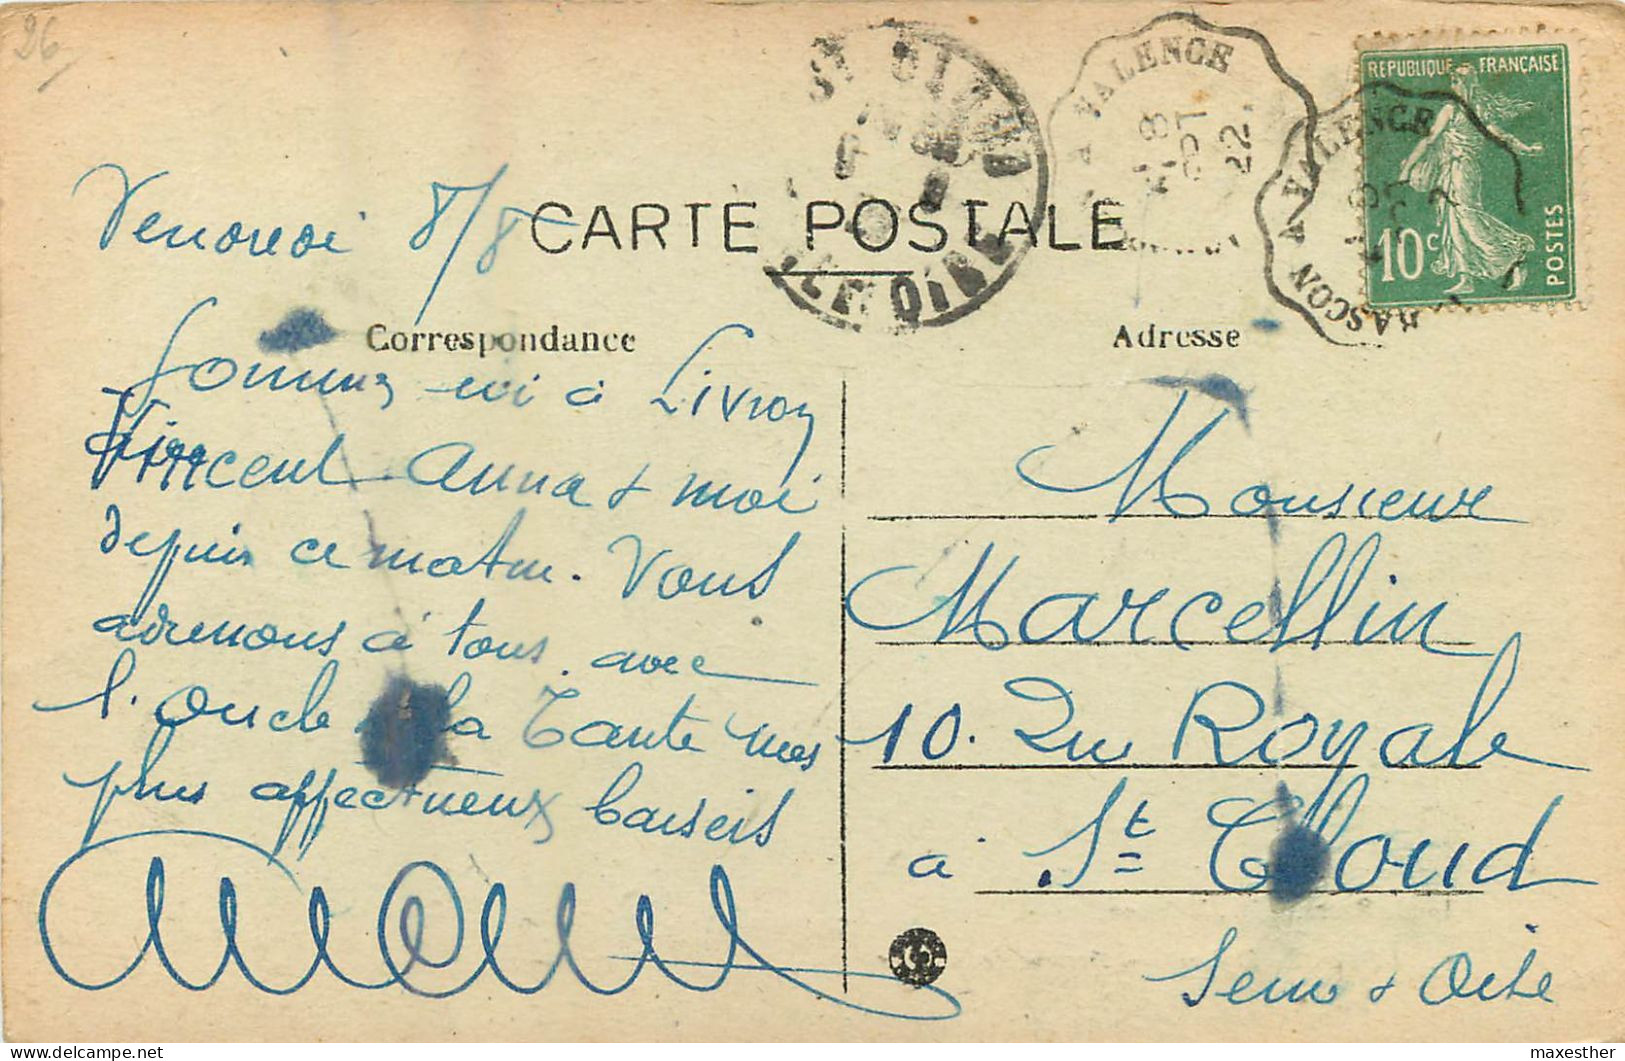 26
ST CLOUD
SEINE ET OISE
A VALENCE
8
SPT
22
TARASCON A VALENCE
REPUBLIQUE FRANÇAISE
10c
POSTES
CARTE POSTALE
Correspondance
Adresse
Vendredi 8/8
Sommes ici à Livron
Vincent Anna & moi
depuis ce matin. Vous
adressons à tous avec
l'oncle & la Tante nos
plus affectueux baisers
Monsieur
Marcellin
10. Rue Royale
à St Cloud
Seine & Oise
maxesther